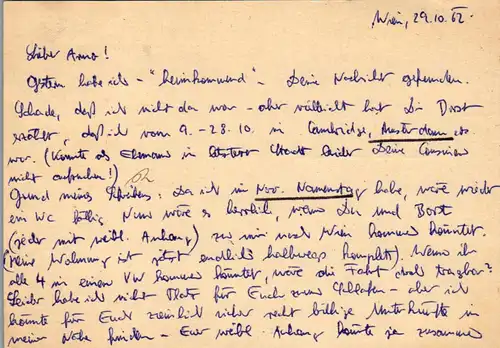 Wien, 29.10.62
Lieber Arno!
Gestern habe ich - "heimkommend" - Deine Nachricht gefunden.
Schade, daß ich nicht da war - aber vielleicht hat Dir Dorst
erzählt, daß ich vom 9. - 28.10. in Cambridge, Amsterdam etc.
war. (Konnte als Ehemann in letzterer Stadt leider Deine Cousinen
nicht aufsuchen!)
Grund meines Schreibens: Da ich im Nov. Namenstag habe, wäre wieder
ein WE fällig. Nun wäre es herrlich, wenn Du und
(jeder mit weibl. Anhang) zu mir nach Wien kommen könntet.
(Meine Wohnung ist jetzt endlich halbwegs komplett). Wenn ihr
alle 4 in einem VW kommen könntet, wäre die Fahrt doch tragbar?
Leider habe ich nicht Platz für Euch zum Schlafen - aber ich
könnte für Euch ziemlich sicher recht billige Unterkünfte in
meiner Nähe finden - Euer weibl. Anhang könnte ja zusammen